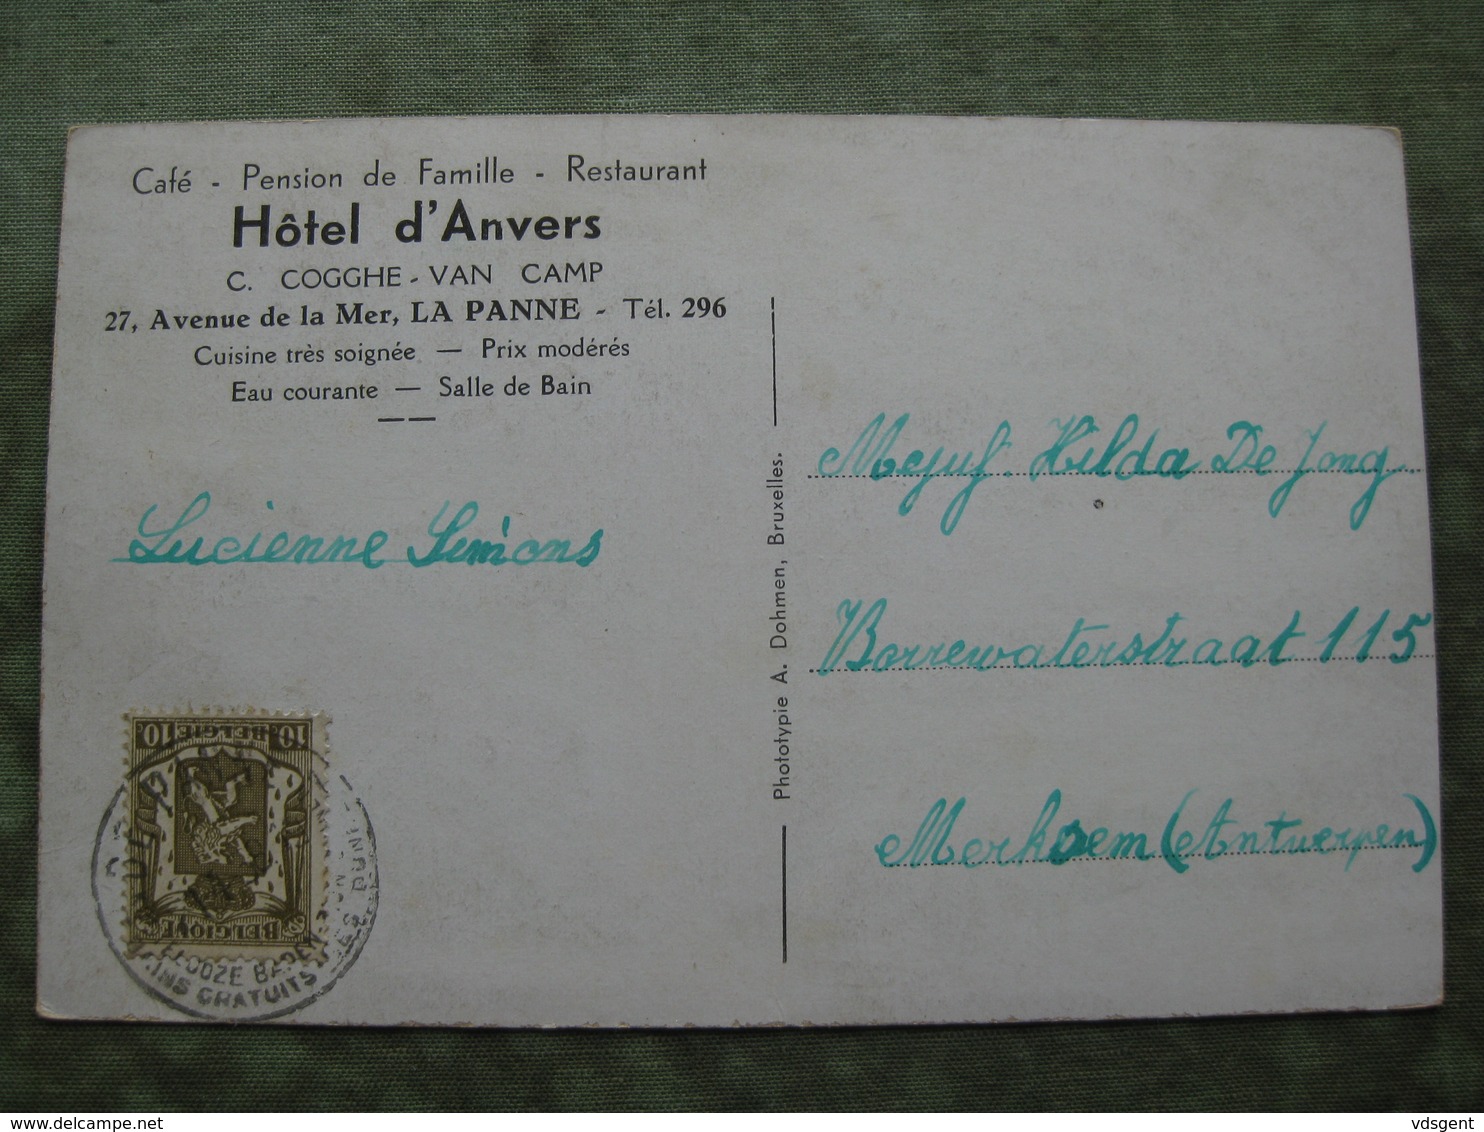 Café - Pension de Famille - Restaurant
Hôtel d'Anvers
C. COGGHE - VAN CAMP
27, Avenue de la Mer, LA PANNE - Tél. 296
Cuisine très soignée — Prix modérés
Eau courante — Salle de Bain
Lucienne Simons
Phototypie A. Dohmen, Bruxelles.
Mejuf. Hilda De Jong
Borrewaterstraat 115
Merksem (Antwerpen)
10c BELGIE 10c
BELGIQUE
BADEN
BAINS GRATUITS
delcampe.net
vdsgent